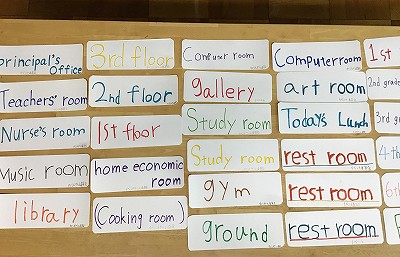 principal's
Office
Teachers' room
Nurse's room
Music room
library
3rd floor
2nd floor
1st floor
home economic
room
(Cooking room)
Computer room
gallery
Study room
Study room
gym
ground
Computer room
art room
Today's Lunch
rest room
rest room
rest room
1st
2nd grade
3rd grade
4th
6th